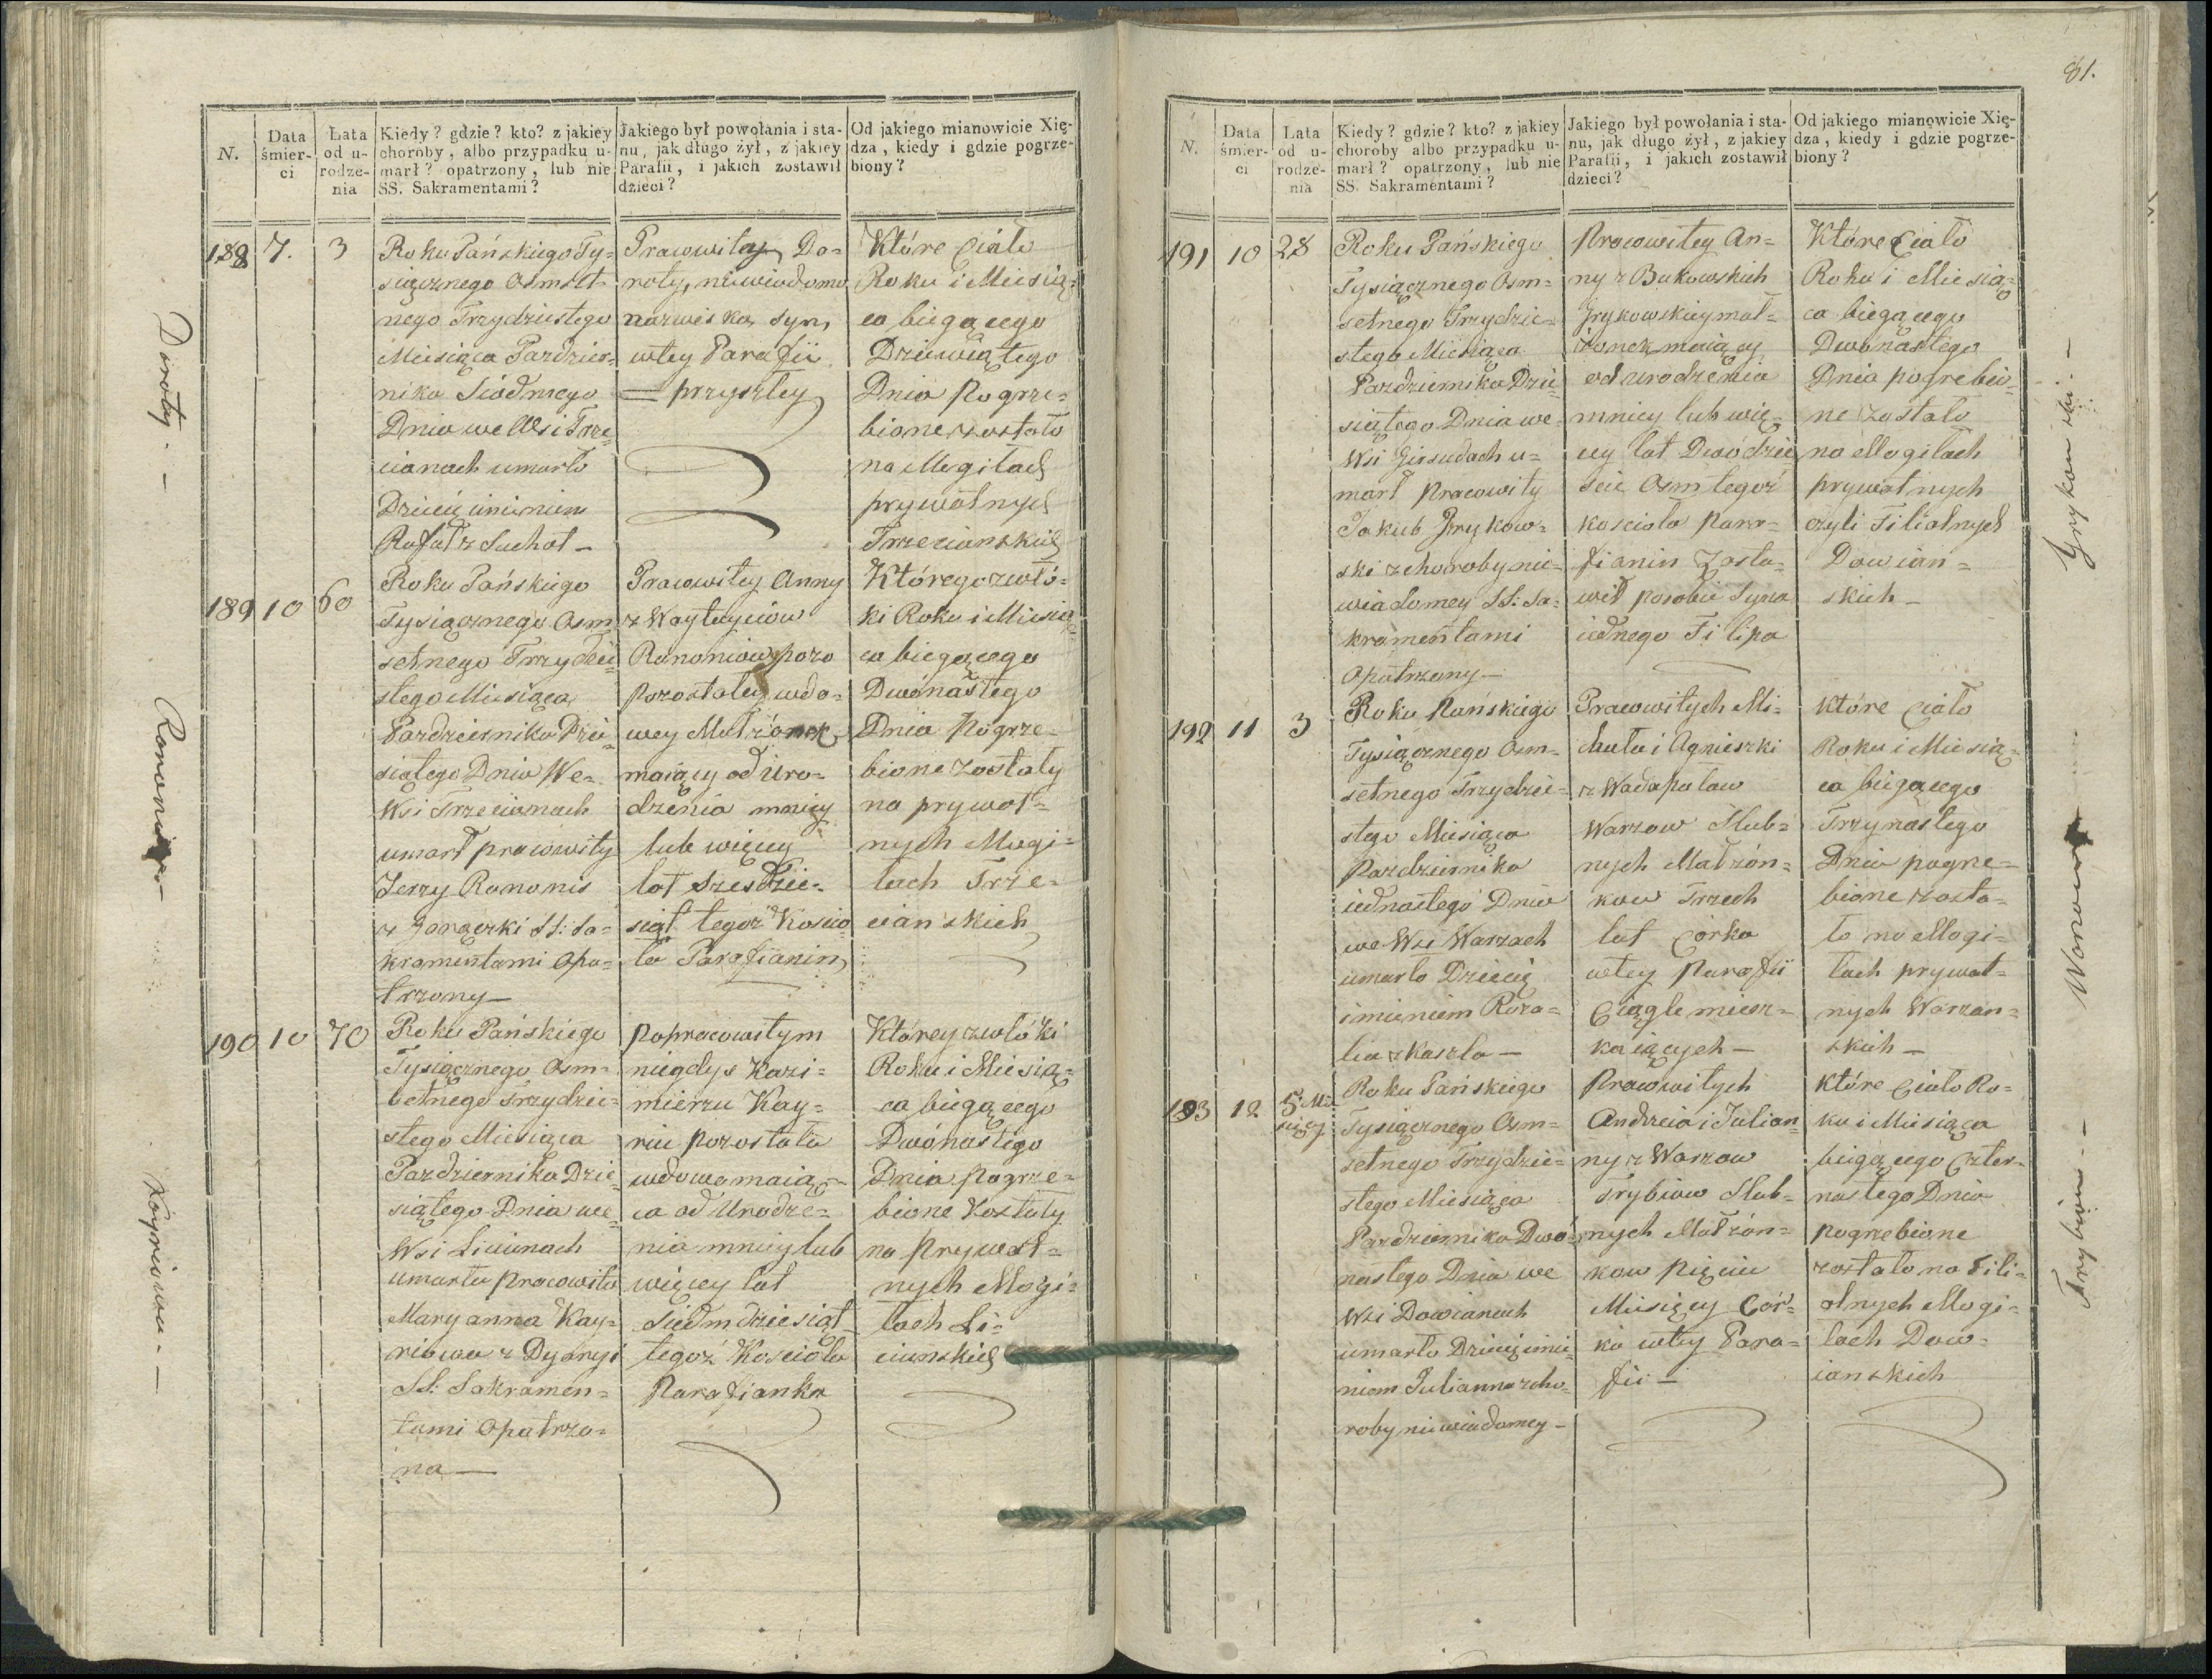 N.
Data śmier-ci
Lata od u-rodze-nia
Kiedy? gdzie? kto? z jakiey
choroby, albo przypadku u-
marł? opatrzony, lub nie
SS. Sakramentami?
Jakiego był powołania i sta-
nu, jak długo żył, z jakiey
Parafii, i jakich zostawił
dzieci?
Od jakiego mianowicie Xię-
dza, kiedy i gdzie pogrze-
biony?
188
7.
3
Roku Pańskiego Ty=
siącznego Osmset=
nego Trzydziestego
Miesiąca Pazdzier=
nika Siódmego
Dnia we Wsi Trze=
cianach umarło
Dziecię imieniem
Rafał z Suchot —
Pracowitey Do=
roty, niewiadomo
nazwiska, syn,
wtey Parafii
= przyszłey
Które Ciało
Roku i Miesią=
ca biegącego
Dziewiątego
Dnia Pogrze=
bione zostało
na Mogiłach
prywatnych
Trzeciańskich
Doroty. —
189
10
60
Roku Pańskiego
Tysiącznego Osm
setnego Trzydzie=
stego Miesiąca
Pazdziernika Dzie=
siątego Dnia We=
Wsi Trzecianach
umarł pracowity
Jerzy Rononis
z Gorączki SS: Sa=
kramentami Opa=
trzony —
Pracowitey Anny
z Wayteyciów
Rononiowy pozo
pozostałey wdo=
wey Małżonek
maiący od Uro=
dzenia mniey
lub więcey
lat Szesdzie=
siąt tegoż Kościo
ła Parafianin,
Którego zwło=
ki Roku i Miesią
ca biegącego
Dwónastego
Dnia Pogrze=
bione zostały
na prywat=
nych Mogi=
łach Trze=
ciańskich
190
10
70
Roku Pańskiego
Tysiącznego Osm=
setnego Trzydzie=
stego Miesiąca
Pazdziernika Dzie=
siątego Dnia we
Wsi Licianach
umarła Pracowita
Maryanna Kay=
riowa z Dyaryi
SS: Sakramen=
tami Opatrzo=
na —
po pracowitym
niegdys Kazi=
mierzu Kay=
riu pozostała
wdowa maią=
ca od Urodze=
nia mniey lub
więcey lat
Siedmdziesiąt
tegoż Kościoła
Parafianka
Którey zwłóki
Roku i Miesią=
ca biegącego
Dwónastego
Dnia Pogrze=
bione Zostały
na Prywat=
nych Mogi=
łach Li=
ciańskich
Kayriowa. —
81.
N.
Data śmier-ci
Lata od u-rodze-nia
Kiedy? gdzie? kto? z jakiey
choroby albo przypadku u-
marł? opatrzony, lub nie
SS. Sakramentami?
Jakiego był powołania i sta-
nu, jak długo żył, z jakiey
Parafii, i jakich zostawił
dzieci?
Od jakiego mianowicie Xię-
dza, kiedy i gdzie pogrze-
biony?
191
10
28
Roku Pańskiego
Tysiącznego Osm=
setnego Trzydzie=
stego Miesiąca
Pazdziernika Dzie
siątego Dnia we=
Wsi Girsudach u=
marł Pracowity
Jakub Grykow=
ski z choroby nie=
wiadomey SS: Sa=
kramentami
Opatrzony —
Pracowitey An=
ny z Bukowskich
Grykowskiey mał=
żonek maiący
od urodzenia
mniey lub wię=
cey lat Dwódzie
ście Osm tegoż
koscioła Para=
fianin Zosta=
wił po sobie Syna
iednego Filipa
Które Ciało
Roku i Miesią=
ca biegącego
Dwónastego
Dnia pogrebio=
ne zostało
na Mogiłach
prywatnych
czyli Filialnych
Dowian=
skich —
192
11
3
Roku Pańskiego
Tysiącznego Osm=
setnego Trzydzie=
stego Miesiąca
Pazdziernika
iednastego Dnia
we Wsi Warzach
umarło Dziecię
imieniem Roza=
lia z Kaszlu —
Pracowitych Mi=
chała i Agnieszki
z Wadapałow
Warzow Slub=
nych Małżon=
kow Trzech
lat Córka
wtey Parafii
Ciągle miesz=
kaiących —
Które Ciało
Roku i Miesią=
ca biegącego
Trzynastego
Dnia pogrze=
bione zosta=
ło na Mogi=
łach prywat=
nych Warzan=
skich —
193
12
5 Mie
sięcy
Roku Pańskiego
Tysiącznego Osm=
setnego Trzydzie=
stego Miesiąca
Pazdziernika Dwó=
nastego Dnia we
Wsi Dowianach
umarło Dziecię imie=
niem Julianna z cho=
roby niewiadomey —
Pracowitych
Andrzeia i Julian=
ny z Warzow
Trybiow Slub=
nych Małżon=
kow Pięciu
Miesięcy Cór=
ka wtey Para=
fii —
Które Ciało Ro=
ku i Miesiąca
biegącego Czter=
nastego Dnia
pogrzebione
zostało na Fili=
alnych Mogi=
łach Dow=
ianskich
Trybiow. —